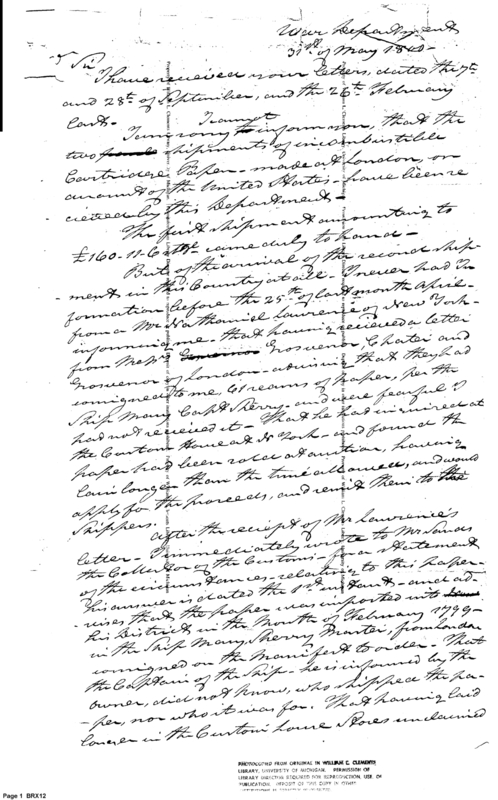 War Department
31st of May 1800
Sir
I have received your letters, dated the 7th
and 28th of September, and the 26th February
last.
I cannot
I am sorry to inform you, that the
two shipments of incombustible
Cartridge Paper - made at London, on
account of the United States - have been re
ceived by this Department -
The first shipment amounting to
£160-11- came duly to hand -
But of the arrival of the second ship-
ment in this Country at all - I never had In
formation before the 25th of last month April -
from a Mr. Nathaniel Lawrence of New York -
informing me - that having received a letter
from Messrs Grosvenor, Chater and
Grosvenor of London - advising that they had
consigned to me, 61 reams of paper, per the
Ship Mary Capt Sherry - and were fearful I
had not received it - That he had inquired at
the Custom House at N York - and found the
paper had been sold at auction, having
lain longer than the time allowed, and would
apply for the proceeds, and remit them to the
Shippers.
After the receipt of Mr Lawrence's
letter - I immediately wrote to Mr. Sands
the Collector of the Customs - for a statement
of the circumstances - relating to this paper -
his answer is dated the 1st instant - and ad-
vises that the paper was imported into
this District in the Month of February 1799 -
in the Ship Mary, Sherry Master, from London
consigned on the Manifest to order - That
the Captain of the Ship - he is informed by the
owner, did not know, who shipped the pa-
-per, nor who it was for. That having laid
longer in the Custom house Stores unclaimed
PHOTOCOPIED FROM ORIGINAL IN WILLIAM L. CLEMENTS
LIBRARY, UNIVERSITY OF MICHIGAN. PERMISSION OF
LIBRARY DIRECTOR REQUIRED FOR REPRODUCTION, USE, OR
PUBLICATION. DEPOSIT OF THIS COPY IN OTHER
Page 1 BRX12